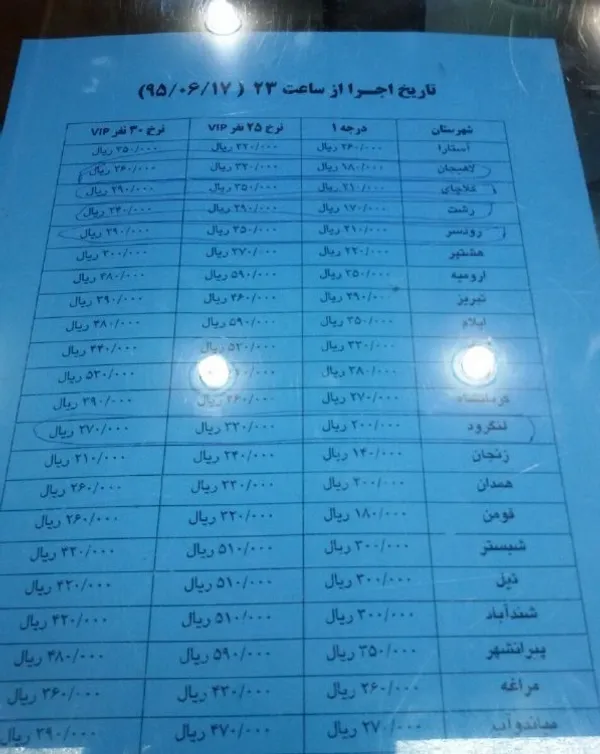 تاریخ اجرا از ساعت ۲۳ (۹۵/۰۶/۱۷)
شهرستان درجه ۱ نرخ ۲۵ نفر VIP نرخ ۳۰ نفر VIP
آستارا ۲۶۰/۰۰۰ ریال ریال ۳۵۰/۰۰۰ ریال
لاهیجان ۱۸۰/۰۰۰ ریال ۳۲۰/۰۰۰ ریال ۲۶۰/۰۰۰ ریال
کلاچای ۲۱۰/۰۰۰ ریال ۳۵۰/۰۰۰ ریال ۲۹۰/۰۰۰ ریال
رشت ۱۷۰/۰۰۰ ریال ۲۹۰/۰۰۰ ریال ۲۴۰/۰۰۰ ریال
رودسر ۲۱۰/۰۰۰ ریال ۳۵۰/۰۰۰ ریال ۲۹۰/۰۰۰ ریال
هشتپر ۲۲۰/۰۰۰ ریال ۳۷۰/۰۰۰ ریال ۳۰۰/۰۰۰ ریال
ارومیه ۳۵۰/۰۰۰ ریال ۵۹۰/۰۰۰ ریال ۴۸۰/۰۰۰ ریال
تبریز ۲۹۰/۰۰۰ ریال ۴۶۰/۰۰۰ ریال ۳۹۰/۰۰۰ ریال
ایلام ۳۵۰/۰۰۰ ریال ۵۹۰/۰۰۰ ریال ۴۸۰/۰۰۰ ریال
ریال ۵۲۰/۰۰۰ ریال ۴۴۰/۰۰۰ ریال
۳۸۰/۰۰۰ ریال ریال ۵۳۰/۰۰۰ ریال
کرمانشاه ۲۷۰/۰۰۰ ریال ۴۶۰/۰۰۰ ریال ۳۹۰/۰۰۰ ریال
لنگرود ۲۰۰/۰۰۰ ریال ۳۲۰/۰۰۰ ریال ۲۷۰/۰۰۰ ریال
زنجان ۱۴۰/۰۰۰ ریال ۲۴۰/۰۰۰ ریال ۲۱۰/۰۰۰ ریال
همدان ۲۰۰/۰۰۰ ریال ۳۲۰/۰۰۰ ریال ۲۶۰/۰۰۰ ریال
فومن ۱۸۰/۰۰۰ ریال ۳۲۰/۰۰۰ ریال ۲۶۰/۰۰۰ ریال
شبستر ۳۰۰/۰۰۰ ریال ۵۱۰/۰۰۰ ریال ۴۲۰/۰۰۰ ریال
تیل ۳۰۰/۰۰۰ ریال ۵۱۰/۰۰۰ ریال ۴۲۰/۰۰۰ ریال
شندآباد ۳۰۰/۰۰۰ ریال ۵۱۰/۰۰۰ ریال ۴۲۰/۰۰۰ ریال
پیرانشهر ۳۵۰/۰۰۰ ریال ۵۹۰/۰۰۰ ریال ۴۸۰/۰۰۰ ریال
مراغه ۲۶۰/۰۰۰ ریال ۴۳۰/۰۰۰ ریال ۳۶۰/۰۰۰ ریال
میاندوآب ۲۷۰/۰۰۰ ریال ۴۷۰/۰۰۰ ریال ۳۹۰/۰۰۰ ریال